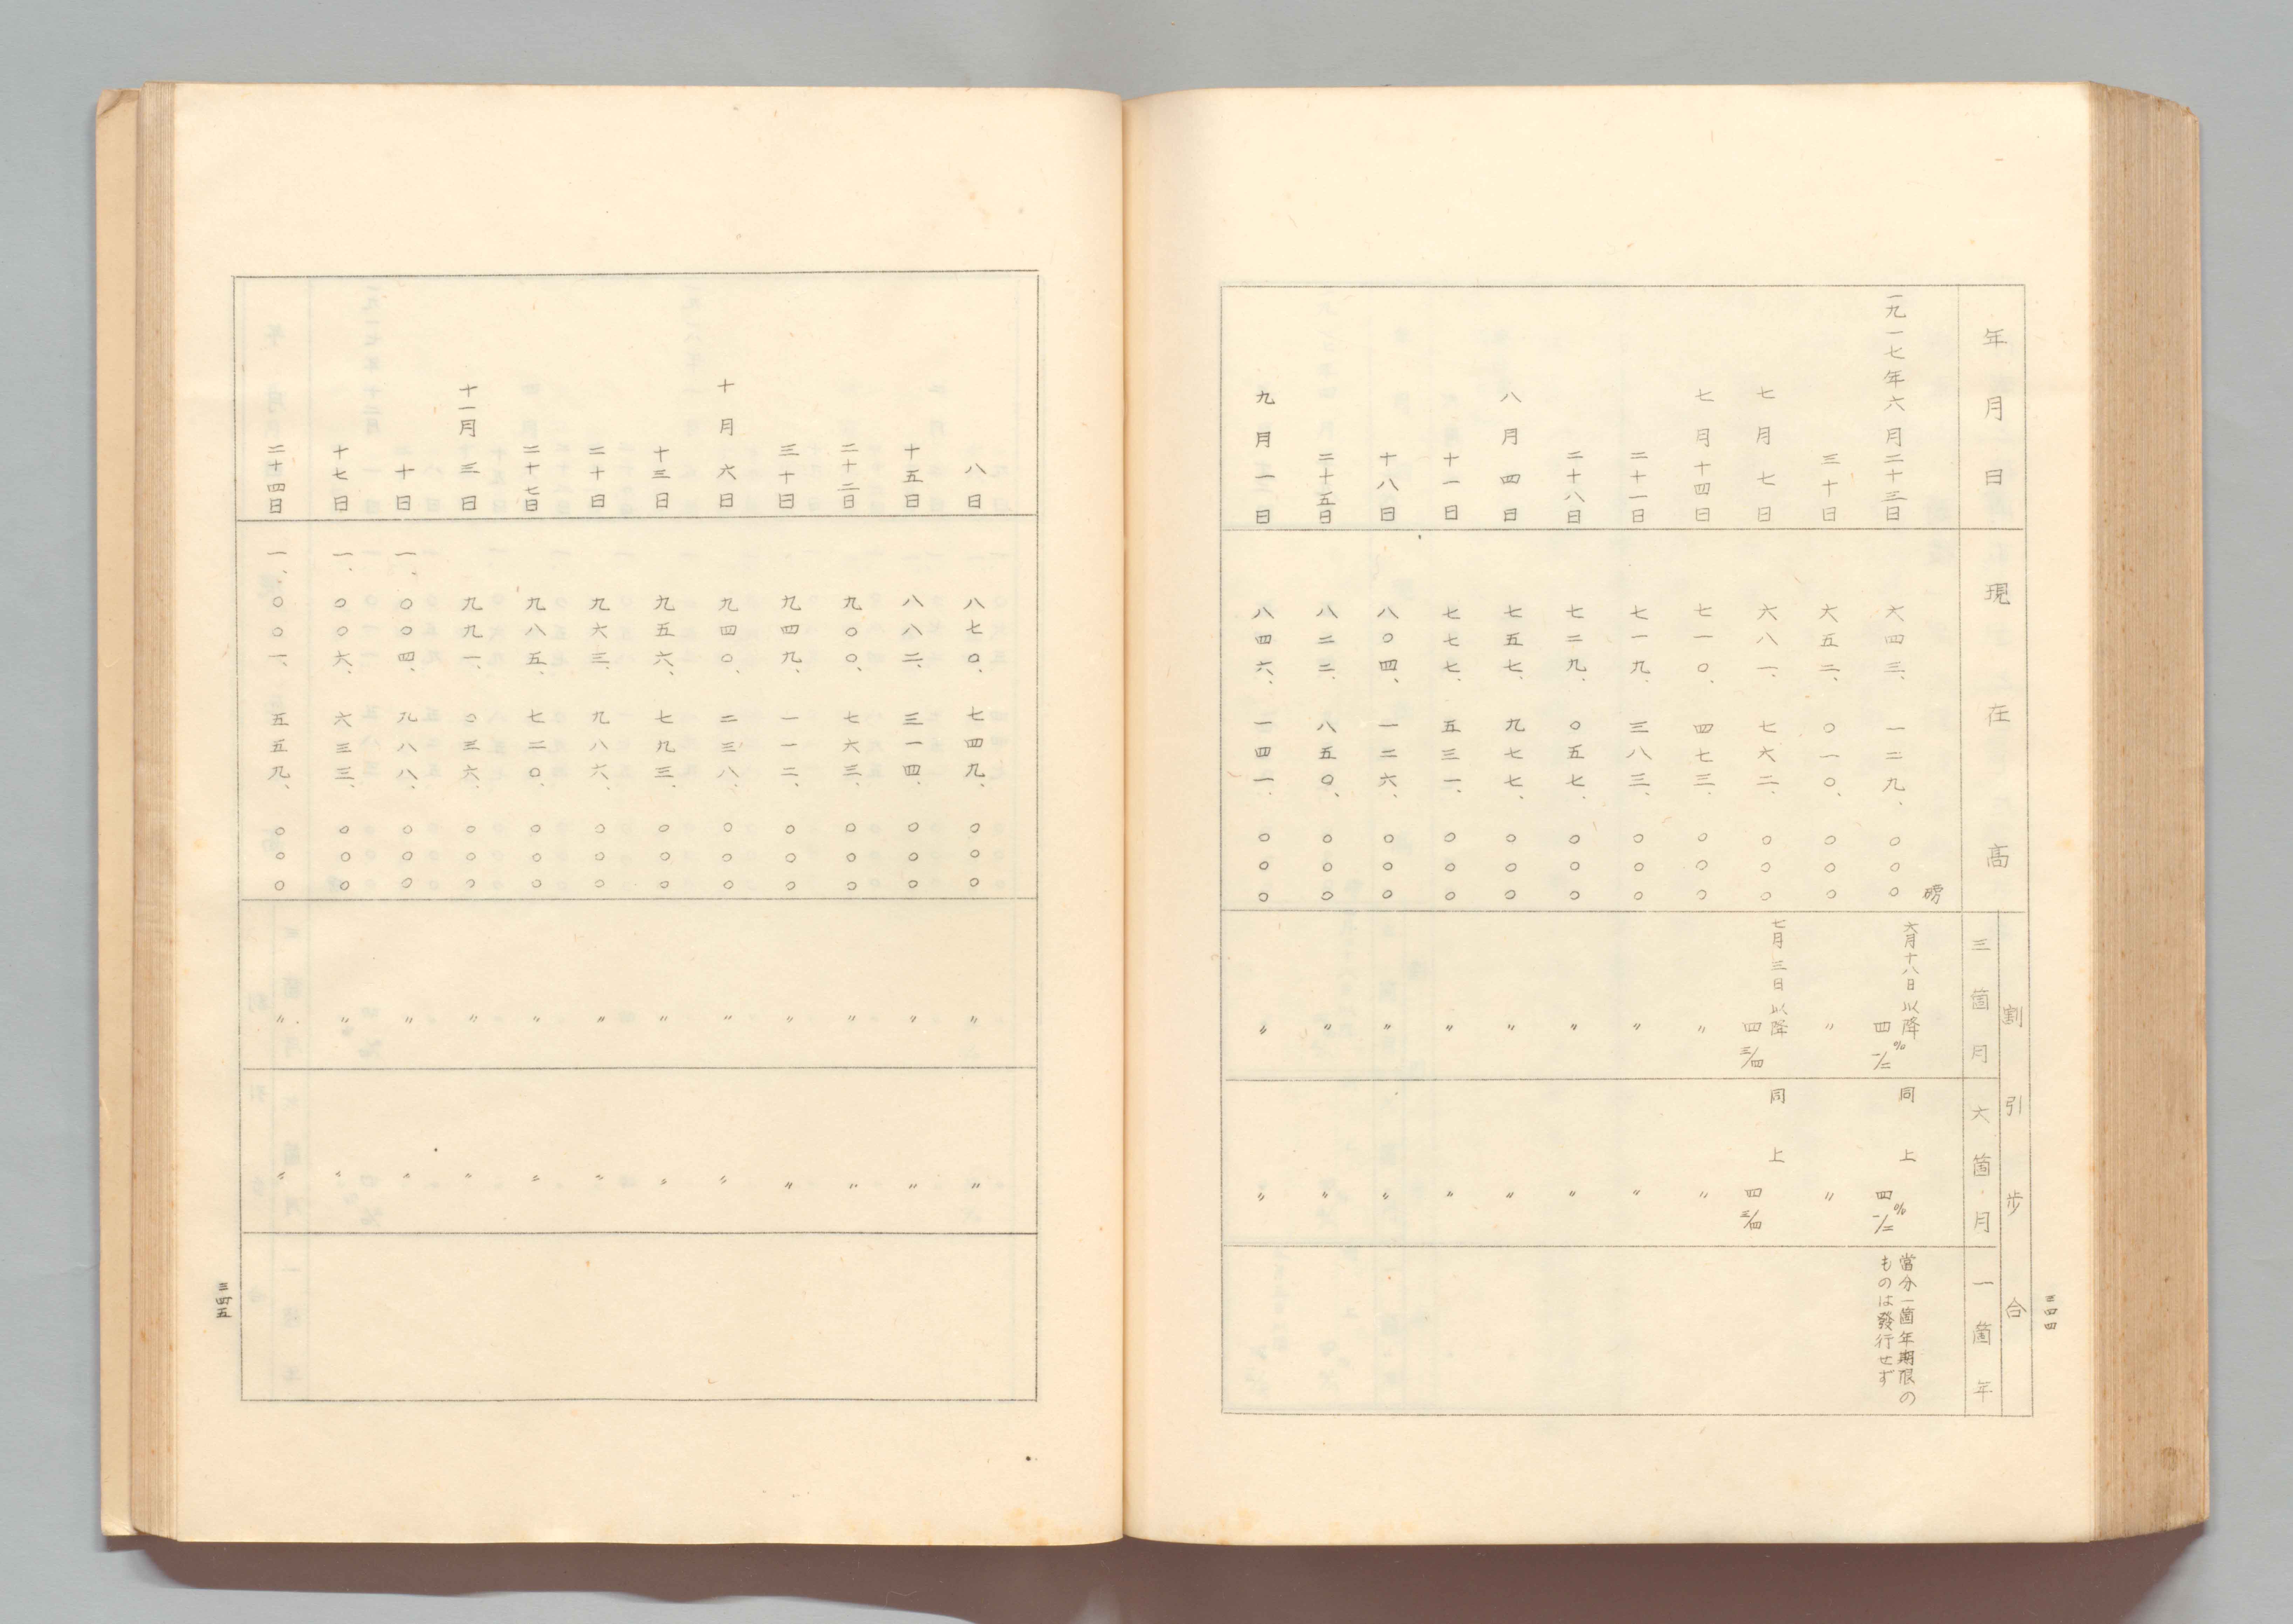 三四四
年月日 現在高 割引歩合
三箇月 六箇月 一箇年
磅
一九一七年六月二十三日 六四三、一二九、〇〇〇 六月十八日以降 四一/二% 同上 四一/二% 當分一箇年期限の
ものは發行せず
三十日 六五二、〇一〇、〇〇〇 〃 〃
七月七日 六八一、七六二、〇〇〇 七月三日以降 四三/四 同上 四三/四
七月十四日 七一〇、四七三、〇〇〇 〃 〃
二十一日 七一九、三八三、〇〇〇 〃 〃
二十八日 七二九、〇五七、〇〇〇 〃 〃
八月四日 七五七、九七七、〇〇〇 〃 〃
十一日 七七七、五三一、〇〇〇 〃 〃
十八日 八〇四、一二六、〇〇〇 〃 〃
二十五日 八二二、八五〇、〇〇〇 〃 〃
九月一日 八四六、一四一、〇〇〇 〃 〃
八日 八七〇、七四九、〇〇〇 〃 〃
十五日 八八二、三一四、〇〇〇 〃 〃
二十二日 九〇〇、七六三、〇〇〇 〃 〃
三十日 九四九、一一二、〇〇〇 〃 〃
十月六日 九四〇、二三八、〇〇〇 〃 〃
十三日 九五六、七九三、〇〇〇 〃 〃
二十日 九六三、九八六、〇〇〇 〃 〃
二十七日 九八五、七二〇、〇〇〇 〃 〃
十一月三日 九九一、〇三六、〇〇〇 〃 〃
十日 一、〇〇四、九八八、〇〇〇 〃 〃
十七日 一、〇〇六、六三三、〇〇〇 〃 〃
二十四日 一、〇〇一、五五九、〇〇〇 〃 〃
三四五